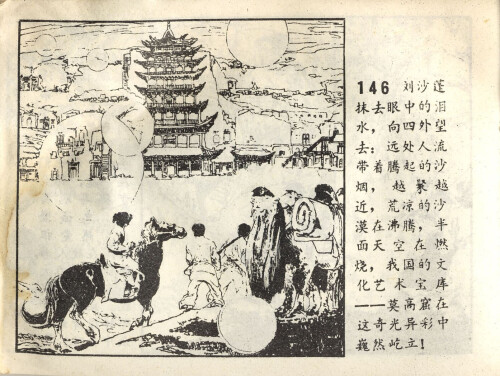 146 刘沙莲
抹去眼中的泪
水，向四外望
去：远处人流
带着腾起的沙
烟，越聚越
近，荒凉的沙
漠在沸腾，半
面天空在燃
烧，我国的文
化艺术宝库
——莫高窟在
这奇光异彩中
巍然屹立！